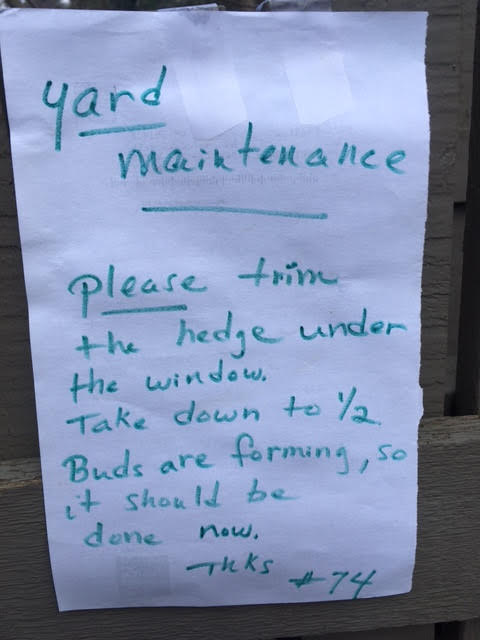 yard
maintenance
please trim
the hedge under
the window.
Take down to 1/2
Buds are forming, so
it should be
done now.
THKS #74